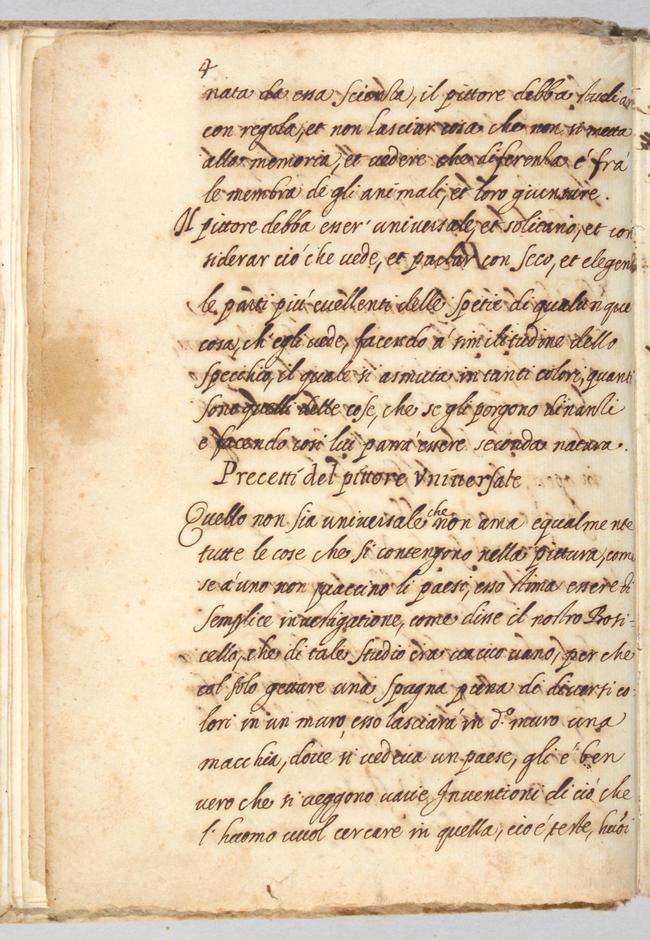 4
nata da essa scienza, il pittore debba studiar
con regola, et non lasciar cosa che non si metta
alla memoria, et vedere che diferenza é frá
le membra de gli animali, et loro giunture.
Il pittore debba esser' universale, et solitario, et con
siderar ció che vede, et parlar con seco, et elegendo
le parti piú eccellenti delle spetie di qualunque
cosa, ch'egli vede, facendo á similitudine dello
specchio, il quale si asmuta in tanti colori, quanti
sono quelli delle cose, che se gli porgono dinanzi
e facendo cosi lui parrá essere seconda natura.
Precetti del pittore Vniuersale
Quello non sia universale che non ama equalmente
tutte le cose che si contengono nella pittura, come
se á uno non piaccino li paesi, esso stima essere di
semplice investigatione, come disse il nostro Boti-
cella, che di tale studio era vano, per che
col solo gettare una spugna piena di diversi co-
lori in un muro, esso lasciará in d.º muro una
macchia, dove si vedeva un paese, gli é ben
vero che si veggono varie Inventioni di ció che
l'huomo vuol cercare in quella, cio é teste, huoi